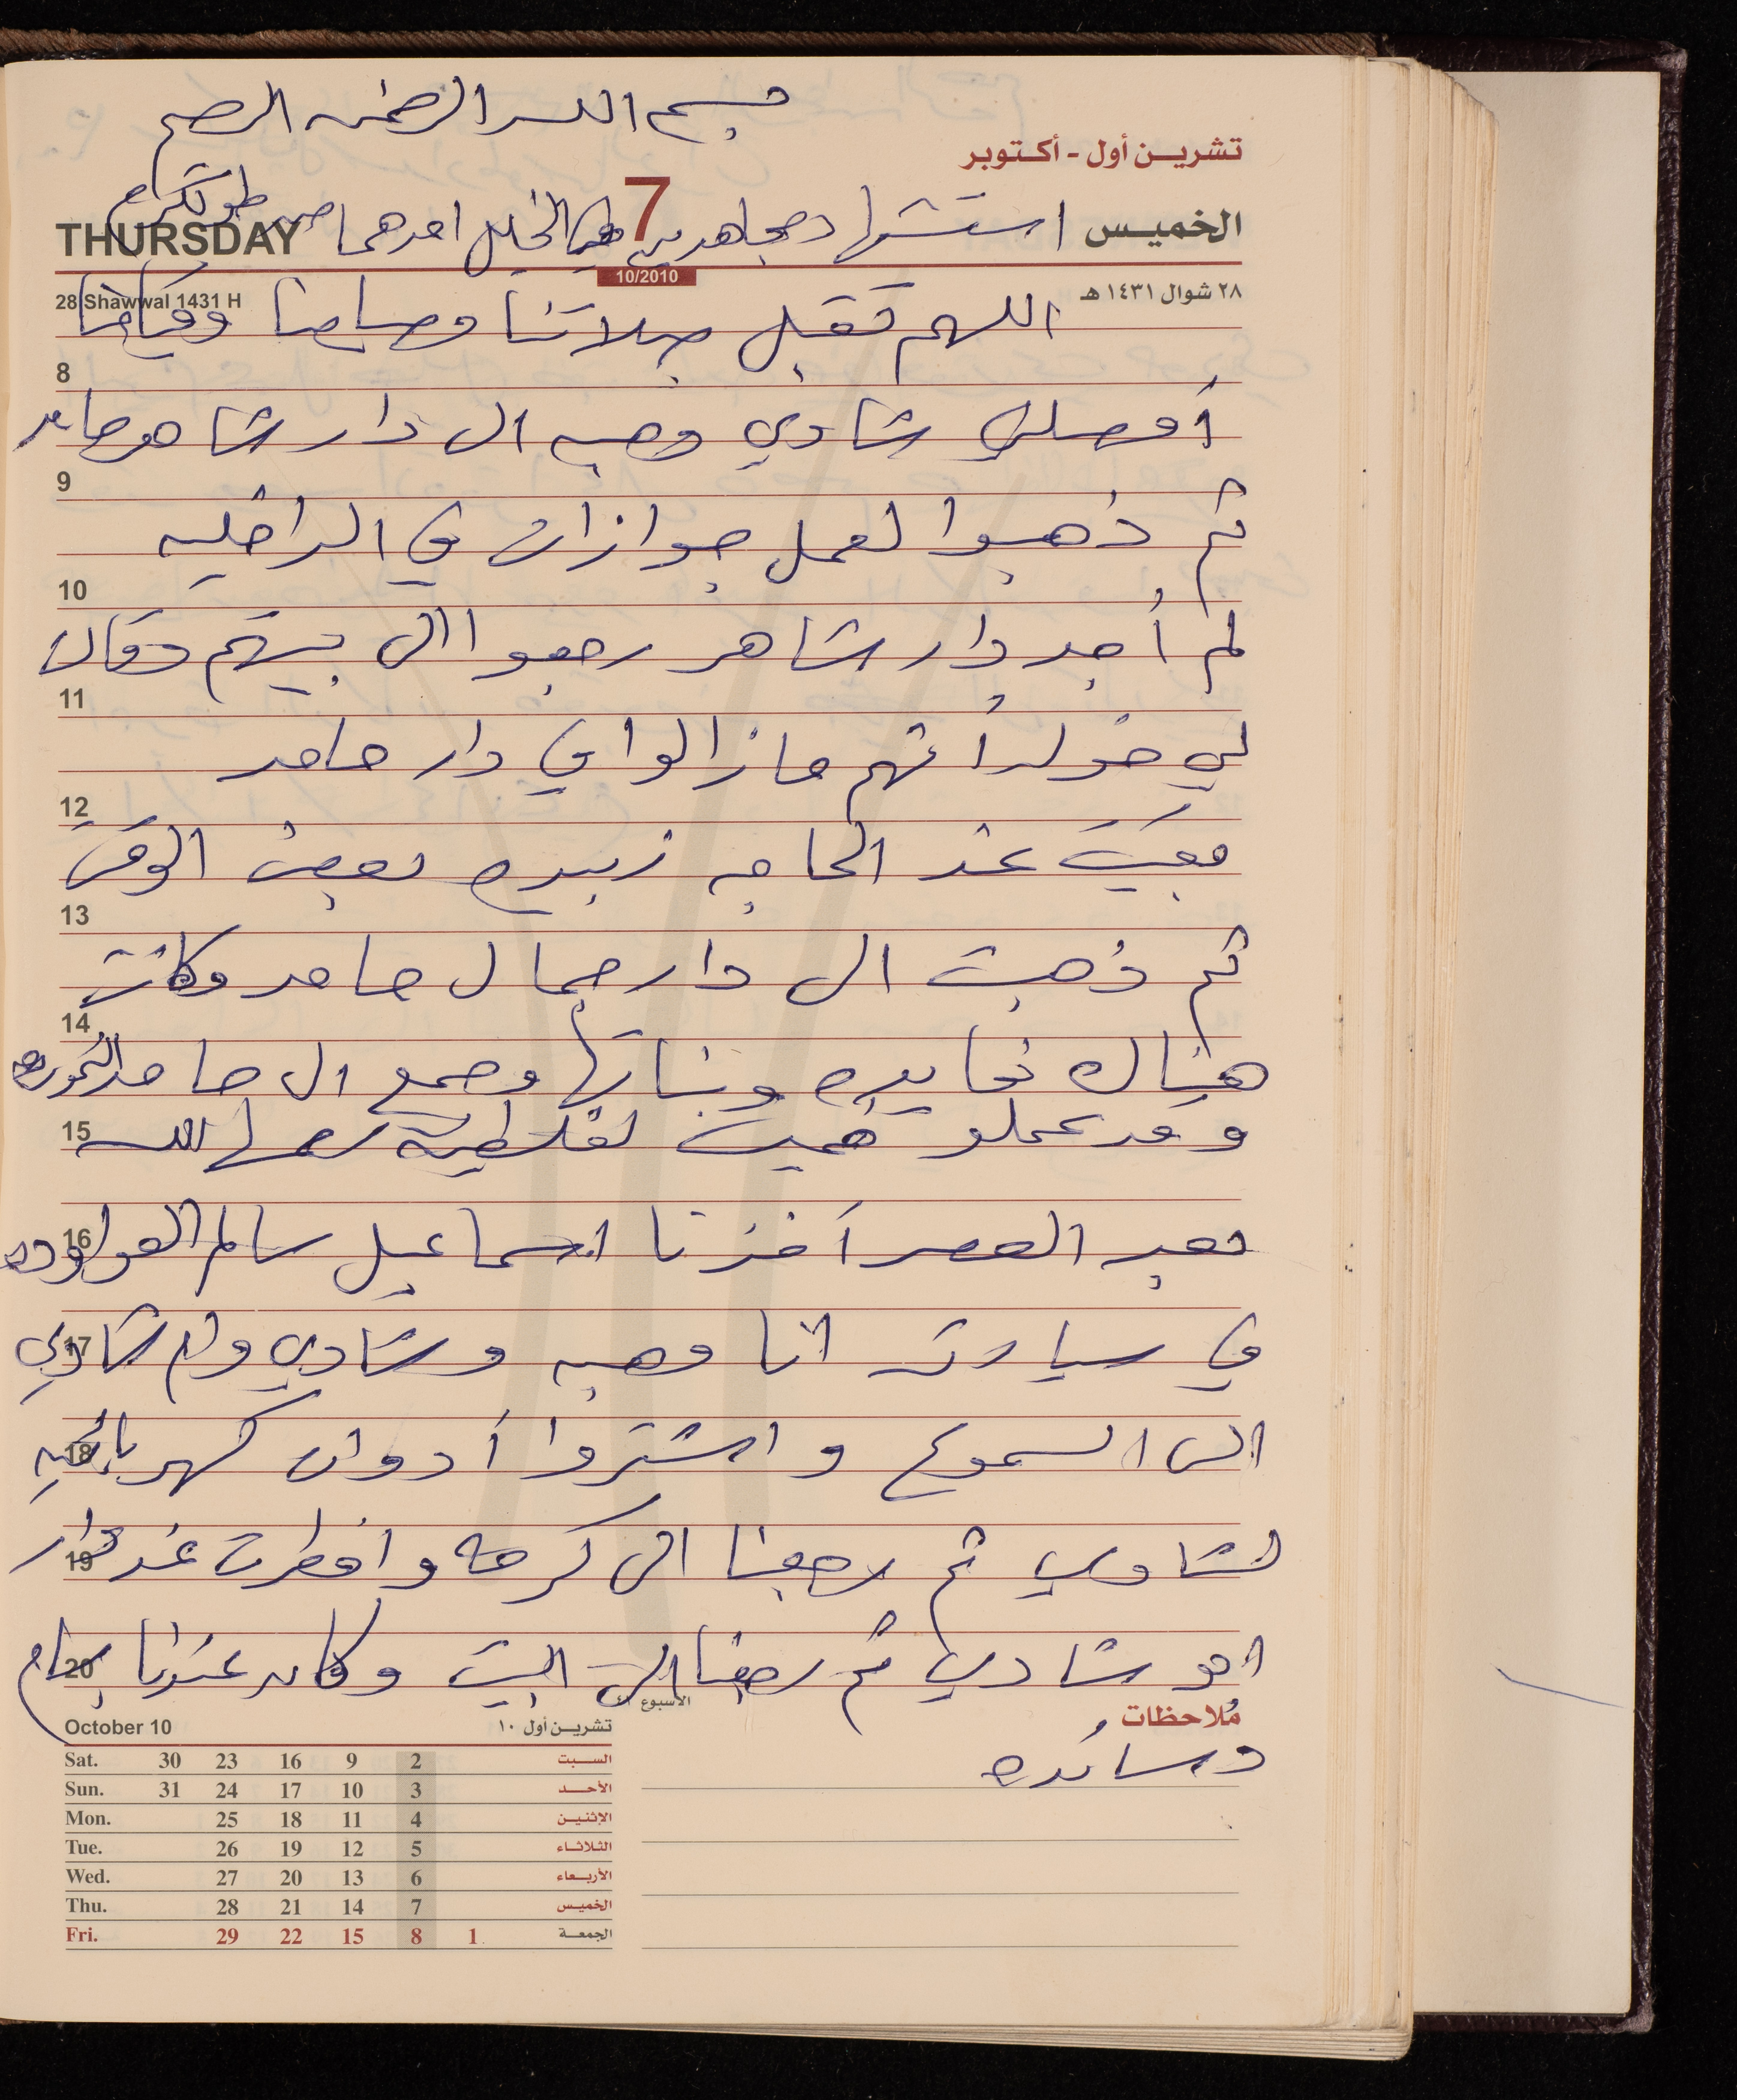 بسم الله الرحمن الرحيم
تشرين أول - أكتوبر
THURSDAY 7 الخميس
استشهاد مجاهدين في الخليل احدهما من طولكرم
10/2010
28 Shawwal 1431 H ٢٨ شوال ١٤٣١ هـ
اللهم تقبل صلاتنا وصيامنا وقيامنا
8
أوصلني شادي وهبه الى دار شاهر حامد
9
ثم ذهبوا لعمل جوازات في الداخليه
10
لم أجد دار شاهر رجعوا الى بيتهم وقالت
11
لي خوله أنهم مازالوا في دار حامد
12
بقيت عند الحاجه زبيده بعض الوقت
13
ثم ذهبت الى دار جمال حامد وكانت
14
هناك نهايه وبناتها وجمع ال حامد
15
وقد عملو لفطيمه رحمها الله
16
بعد العصر أخذنا اسماعيل سالم
17
في سيارته انا وهبه وشادي وام شادي
18
الى السموع واشتروا أدوات كهربائيه
19
لشادي ثم رجعنا الى كرمه وافطرت عند دار
20
ابو شادي ثم رجعنا الى البيت وكان عندنا بسام
وسائده
ملاحظات
الأسبوع ٤١
October 10 تشرين أول ١٠
Sat. 30 23 16 9 2 السبت
Sun. 31 24 17 10 3 الأحد
Mon. 25 18 11 4 الإثنين
Tue. 26 19 12 5 الثلاثاء
Wed. 27 20 13 6 الأربعاء
Thu. 28 21 14 7 الخميس
Fri. 29 22 15 8 1 الجمعة